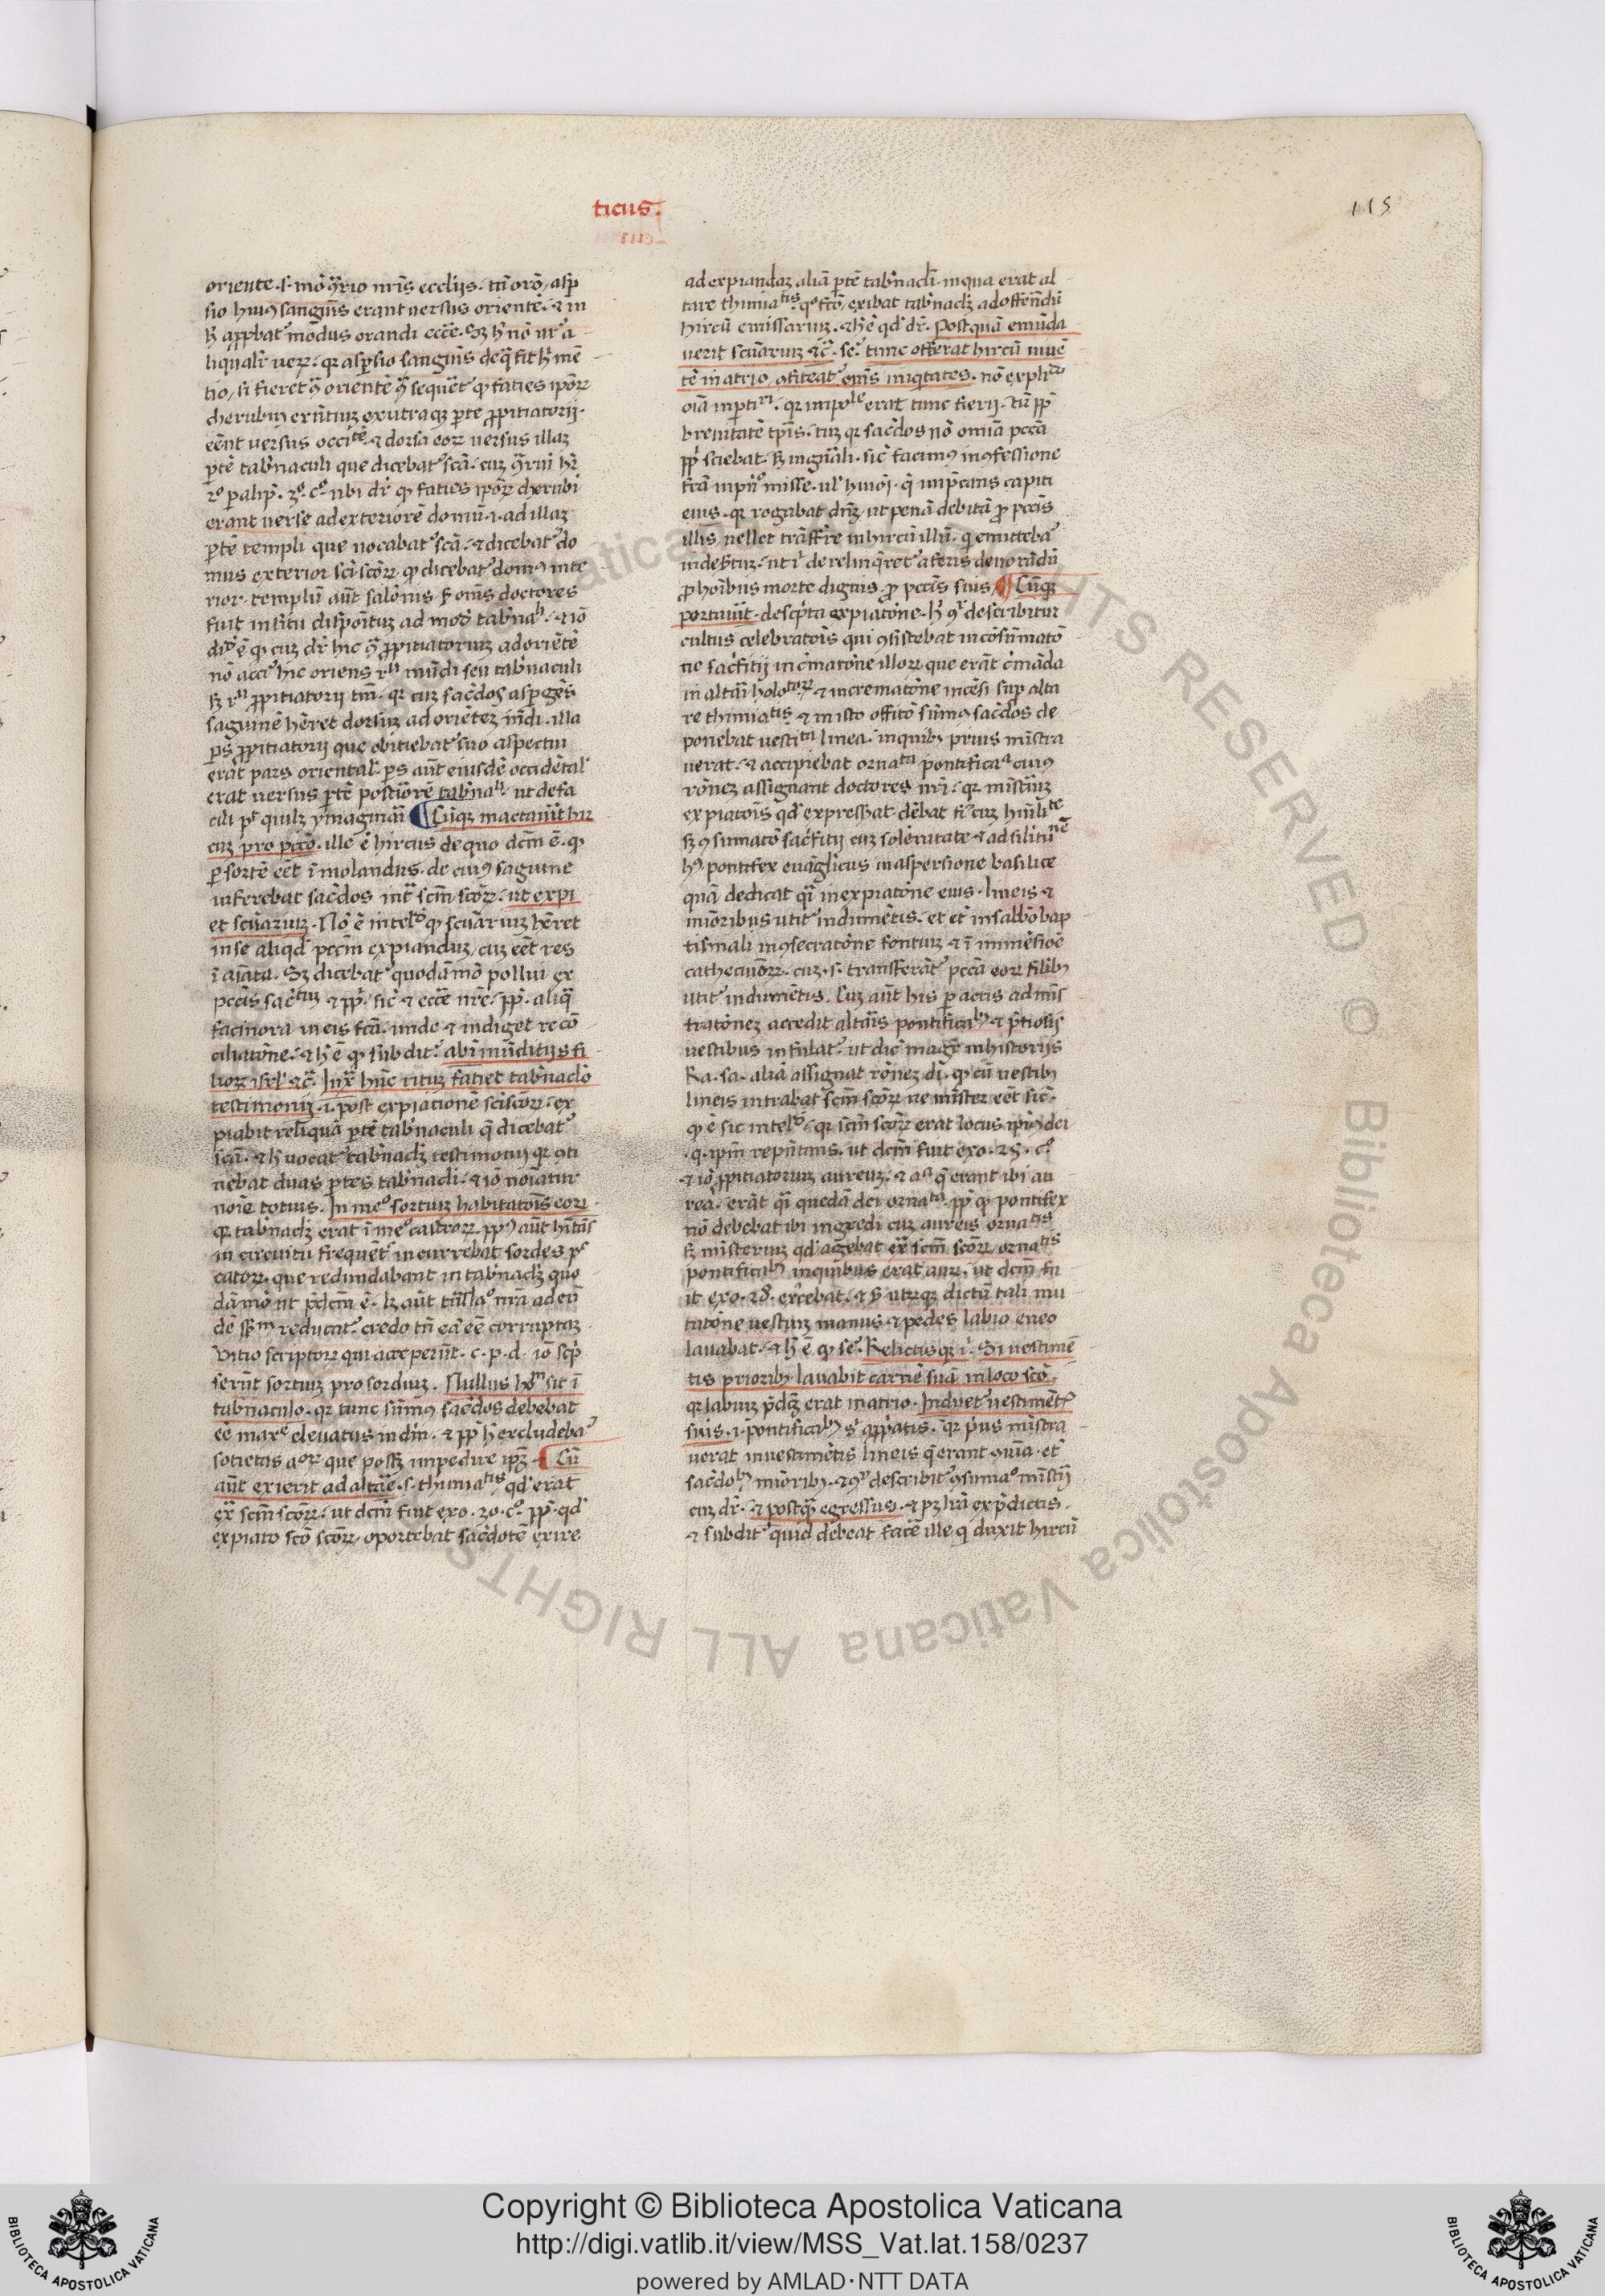 ticus.
115
oriente .s. mō ꝯͣrio nr̄is eccliis. tū orō, asp̄
sio huiꝰ sanguīs erant versus orientē. ⁊ in
h̄ app̄bat᷑ modus orandi ecc̄e. Sꝫ h̄ nō ur᷑ a
liqualr̄ veꝝ. qꝛ asp̄sio sanguīs de q̄ fit h̄ mē
tio, si fieret ꝯͣ orientē ꝯͣ sequēt᷑ ꝙ facies ip̄oꝝ
cherubin existentium ex utraqꝫ ꝑte ꝓpitiatorij.
eēnt versus occiᵗᵉ. ⁊ dorsa eoꝝ versus illaꝫ
ꝑtē tab̄naculi que dicebat᷑ scā. cuꝫ ꝯͣriū hr̄
2º palip̄. 3º. cº. ubi dr̄ ꝙ facies ip̄oꝝ cherubī
erant verse ad exteriorē domū .i. ad illaꝫ
ꝑtē templi que vocabat᷑ scā. ⁊ dicebat᷑ do
mus exterior sc̄i sc̄oꝝ. ꝙ dicebat᷑ domꝰ inte
rior. templū aūt salōnis ẜ om̄s doctores
fuit in situ dispoitum ad modū tab̄naˡⁱ. ⁊ iō
dōᵐ ē ꝙ cuꝫ dr̄ hic ꝯͣ ꝓpitiatorium ad oriētē
nō acci᷑ hic oriens rⁿ mūdi seu tab̄naculi
sꝫ rⁿ ꝓpitiatorij tm̄. qꝛ cuꝫ sac̄dos asp̄gēs
saguinē hēret dorsum ad oriētez mūdi. illa
ps ꝓpitiatorij que obiciebat᷑ suo aspectui
erāt pars oriental᷑. ps aūt eiusdē occidētal᷑
erat versus ꝑtē postiorē tab̄naˡⁱ. ut de fa
cili pᵗ quilꝫ ymaginari ¶ Cūqꝫ mactavīt hir
cum pro pccō. ille ē hircus de quo dcm̄ ē. ꝙ
ꝑ sortē eēt īmolandus. de cuiꝰ saguine
inferebat sac̄dos intͣ scm̄ scōꝝ. ut expi
et scūarium. Nō ē intelᵐ ꝙ scūarium hēret
in se aliqd᷑ pccm̄ expiandum, cuꝫ eēt res
īaīata. Sꝫ dicebat᷑ quodāmō pollui ex
pccīs sac̄ᵗᵘᵐ ⁊ pp̄. sic̄ ⁊ ecc̄e nr̄e. pp̄. aliq̄
facinora in eis fcā. unde ⁊ indiget reco
ciliatōne. ⁊ h̄ ē ꝙ subdit᷑. ab īmūditijs fi
lioꝝ isrl̄ ⁊c̄. Juxᵃ hūc rituꝫ faciet tab̄naclō
testimonij .i. post expiationē sc̄i scōꝝ. ex
piabit reliquā ꝑtē tab̄naculi q̄ dicebat᷑
scā. ⁊ h̄ vocat᷑ tab̄naclꝫ testimonij qꝛ ꝯti
nebat duas ꝑtes tab̄nacli. ⁊ iō noīatur
noīe totius. In meº sortium habitatoīs eoꝝ.
qꝛ tab̄naclꝫ erāt ī meº castroꝝ. ppꝰ aūt hītās
in circuitu frequēt᷑ incurrebat sordes pᶜ
catoꝝ. que redundabant in tab̄naclꝫ quo
dāmō ut p̄dcm̄ ē. lꝫ aūt trāslaº nrā ad eū
dē sēᵐ reducat᷑. credo tn̄ eā eē corruptam
vitio scriptoꝝ qui acceperūt .c. p. d. iō scp̄
serūt sortium pro sordium. Nullus hōᵐ sit ī
tab̄naculo. qꝛ tunc sūmꝰ sac̄dos debebat
eē maxᵉ elevatus in dm̄. ⁊ pp̄ h̄ excludeba᷑
societas aoꝝ que possꝫ impedire ipꝫ. ¶ Cū
aūt exierit ad altāe .s. thimiaᵗⁱˢ. qd᷑ erat
exᵃ scm̄ scōꝝ. ut dcm̄ fuit exo. 30. cº. pp̄. qd᷑
expiato scō scōꝝ, oportebat sac̄dotē exire
ad expiandaꝫ aliā ꝑtē tab̄nacli. in qua erat al
tare thimiaᵗⁱˢ. qº fctō, exibat tab̄naclꝫ ad offēndū
hircū emissarium. ⁊ h̄ ē qd᷑ dr̄. Postquā emūda
verit scūarium ⁊c̄. se᷑. tunc offerat hircū vivē
tē in atrio, ꝯfiteat᷑ om̄s iniq̄tates. nō explīᵈᵒ
oīa in ꝑtiʳⁱ. qꝛ impoˡᵉ erat tunc fieri. tū pp̄
brevitatē tp̄is. tuꝫ qꝛ sac̄dos nō omīa pccā
pp̄ sciebat. ẜ in gn̄ali. sic̄ facimꝰ in ꝯfessione
ai huiº misse. ul᷑ huiōi. q̄ imp̄cans capiti
eius. qꝛ rogabat dn̄ꝫ, ut penā debitā ꝓ pccīs
illis vellet trāsfr̄re in hircū illū. q̄ emitteba᷑
in desertum. ut ī derelinq̄ret᷑ a feris devorādū
ꝓ hoībus morte dignis. ꝓ pccīs suis ¶ Cūqꝫ
portaūt. descpta expiatōne. h̄ ꝯʳ describitur
cultus celebratois qui ꝯsistebat in cōsumatō
ne sac̄fitij in cͣmatōne illoꝝ que erāt cͣmāda
in altāi holoᵗᵒꝝ ⁊ in crematōne incēsi sup̄ alta
re thimiaᵗⁱˢ ⁊ in isto offitō sūmꝰ sac̄dos de
ponebat vestiᵗᵃ linea. in quibꝫ prius mīstra
verat. ⁊ accipiebat ornaᵗᵃ pontificaᵃ cuiꝰ
rōnez assignant doctores nr̄i. qꝛ mīsteriuꝫ
expiatoīs qd᷑ expresserat debat fī cuꝫ humiliᵗᵉ
sꝫ ꝯsumatō sac̄fitij cuꝫ solēnitate ⁊ ad similituⁿᵉ
hꝰ pontifex evāglicus in aspersione basilice
quā dedicat qͣi in expiatōne eius. lineis ⁊
mīoribus utit᷑ indumētis. et et̄ in sabbo bap
tismali in ꝯsecratōne fontium ⁊ ī immēsioē
cathecūoꝝ. cuꝫ .s. transferāt᷑ pccā eoꝝ filibꝫ
utit᷑ indumētis. Cuꝫ aūt his ꝑactis ad mīs
tratōnez accedit altāis pontificaˡᵇꝫ ⁊ p̄tiosis
vestibus infulat᷑. ut dic̄ magr̄ in historijs
Ra. sa. alia assignat rōnez di. ꝙ cū vestibꝫ
lineis intrabat scm̄ scōꝝ ne mister eēt sic̄.
ꝙ ē sic intelᵐ. qꝛ scm̄ scōꝝ erat locus ipiꝰ dei
.q. ipm̄ repn̄tans. ut dcm̄ fuit exo. 25. cº
⁊ iō ꝓpitiatorium aureuꝫ. ⁊ aᵃ q̄ erant ibi au
rea. erāt qͣi quedā dei ornaᵗᵃ. pp̄ ꝙ pontifex
nō debebat ibi ingredi cuꝫ aureis ornaᵗⁱˢ
ẜ misterium qd᷑ agebat exᵃ scm̄ scōꝝ, ornaᵗⁱˢ
pontificaˡᵇꝫ in quibus erat auꝝ. ut dcm̄ fu
it exo. 28. exͨebat. ⁊ ꝑ utrūqꝫ dictū tali mu
tatōne vestium manus ⁊ pedes labio eneo
lavabat. ⁊ h̄ ē ꝙ se᷑. Relictisqꝫ ī. Si vestimē
tis prioribꝫ lavabit carnē suā in loco scō.
qꝛ labium p̄dcꝫ erat in atrio. Induet᷑ vestimēt᷑
suis .i. pontificaˡᵇꝫ sᵗ app̄atis. qꝛ pͥus mīstra
verat in vestimētis lineis q̄ erant ꝯuīa. et̄
sac̄doˡᵇꝫ mīoribꝫ. ⁊ ꝯʳ describit᷑ ꝯsumaº mīstij
cuꝫ dr̄. ⁊ postqͣ egressus. ⁊ pꝫ lrā ex p̄dictis.
⁊ subdit᷑ quid debeat facē ille q̄ duxit hircū
Copyright © Biblioteca Apostolica Vaticana
http://digi.vatlib.it/view/MSS_Vat.lat.158/0237
powered by AMLAD·NTT DATA
BIBLIOTECA APOSTOLICA VATICANA
BIBLIOTECA APOSTOLICA VATICANA
© Biblioteca Apostolica Vaticana ALL RIGHTS RESERVED